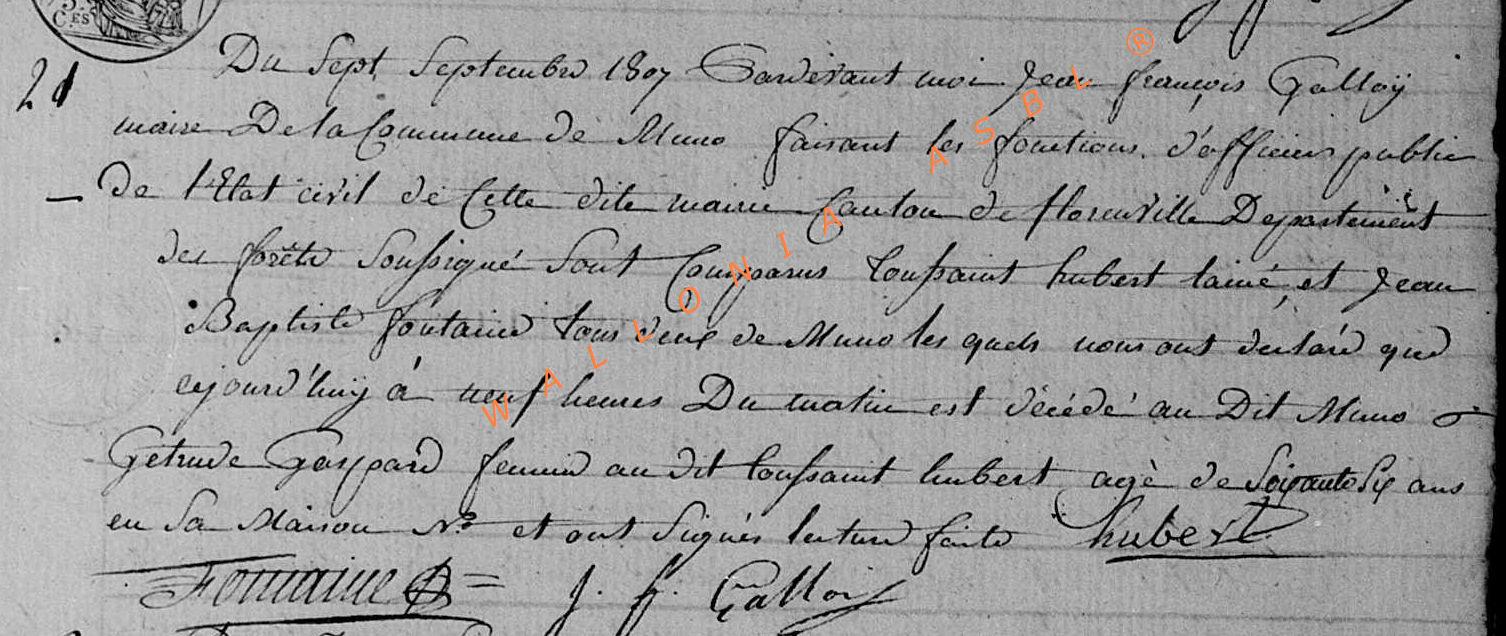 5.
C.ES
21 Du Sept Septembre 1807 Pardevant moi Jean françois Galloÿ
maire De la Commune de Muno faisant les fonctions d'officier public
de l'Etat civil de Cette dite mairie Canton de florenville Departement
des forêts Soussigné Sont Comparus toussaint hubert lainé, et Jean
Baptiste fontaine tous deux de Muno les quels nous ont declaré que
ajourd'huy à neuf heures Du matin est décédé au Dit Muno
Getrude Gaspard femme au dit toussaint hubert agè de Soixante Six ans
en Sa Maison No et ont Signés lecture faite hubert
Fontaine J. f. Galloi
WALLONIA ASBL ®